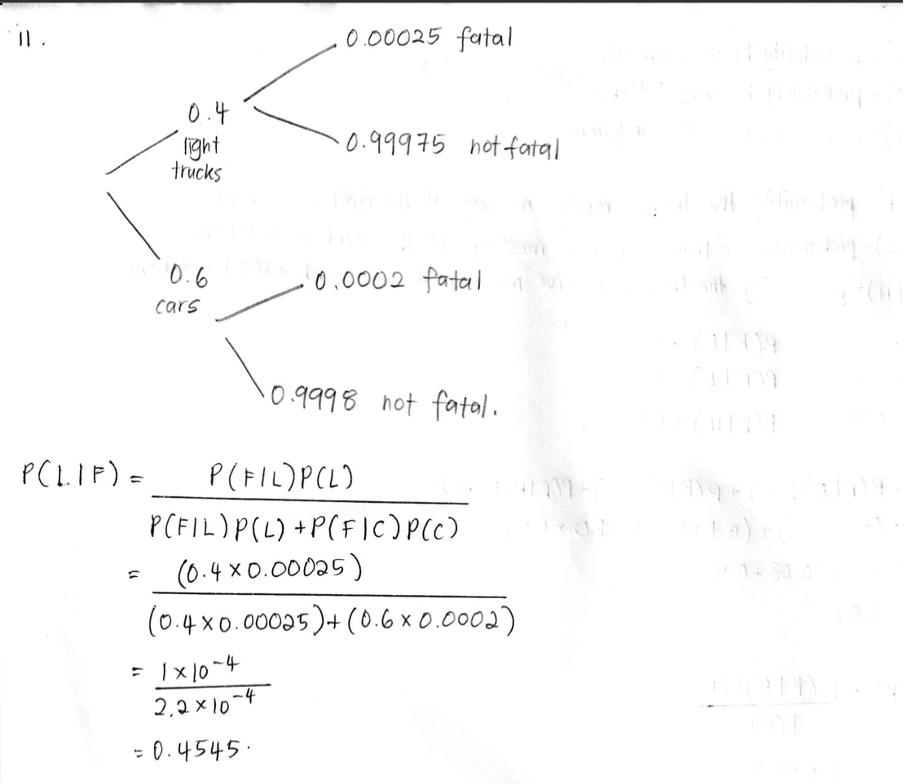 11.
0.00025 fatal
0.4
light
trucks
0.99975 not fatal
0.6
cars
0.0002 fatal
0.9998 not fatal.
P(L|F) = P(F|L)P(L)
P(F|L)P(L) + P(F|C)P(C)
= (0.4 × 0.00025)
(0.4 × 0.00025) + (0.6 × 0.0002)
= 1 × 10⁻⁴
2.2 × 10⁻⁴
= 0.4545.